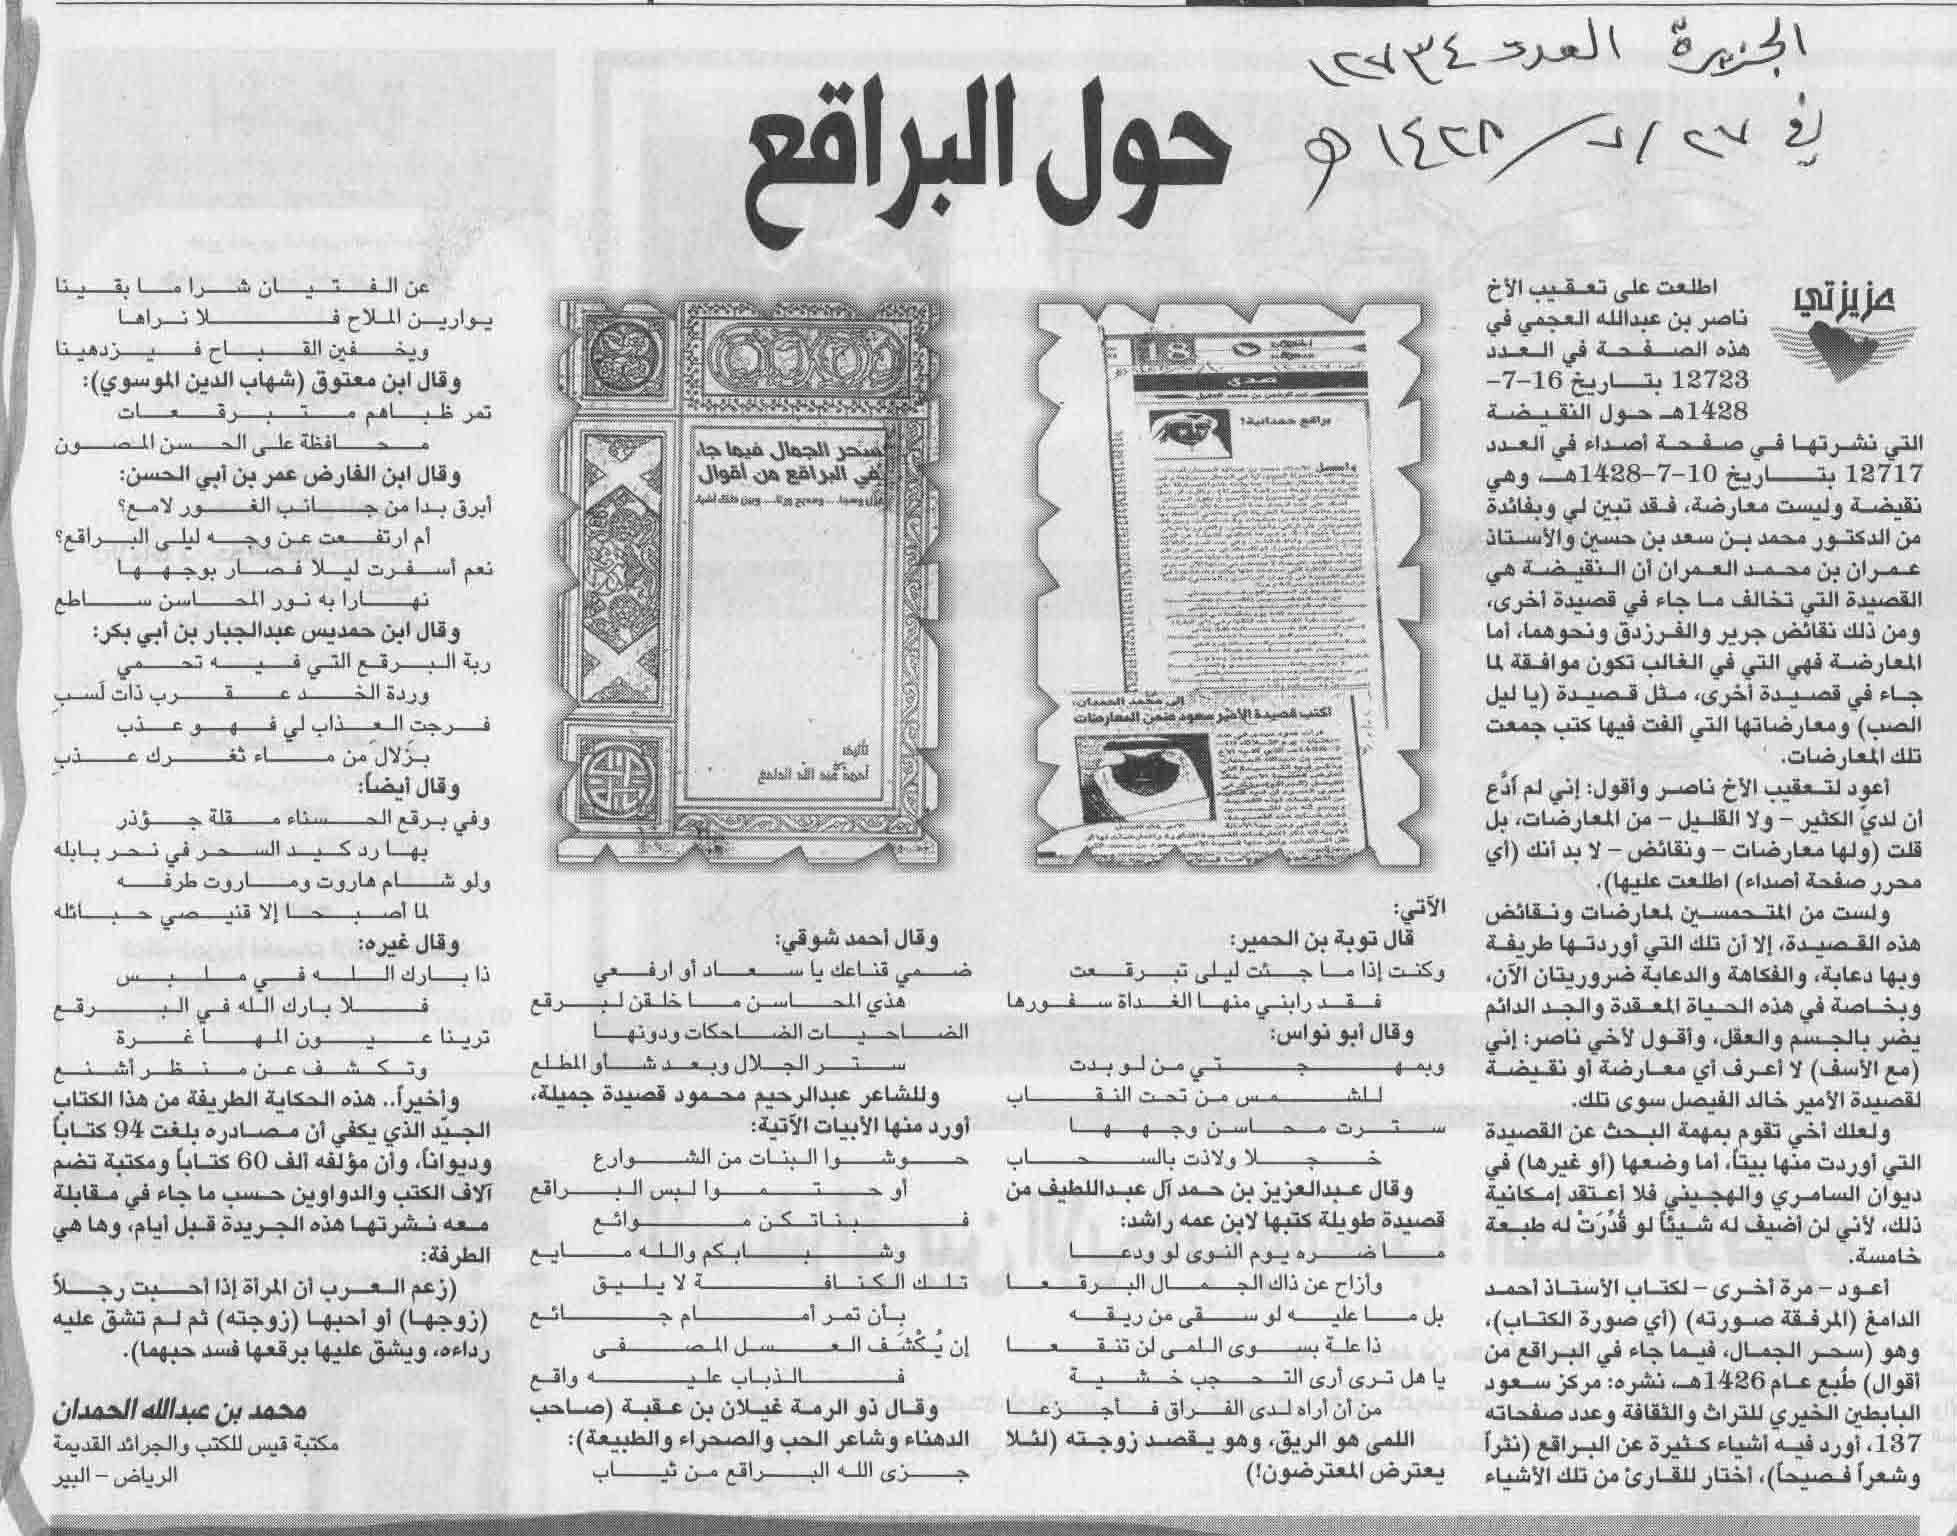 الجزيرة العدد ١٢٧٣٤
في ٢٧/٧/١٤٢٨هـ
حول البراقع
عزيزتي
اطلعت على تعقيب الأخ
ناصر بن عبدالله العجمي في
هذه الصفحة في العدد
12723 بتاريخ 16-7-
1428هـ حول النقيضة
التي نشرتها في صفحة أصداء في العدد
12717 بتاريخ 10-7-1428هـ، وهي
نقيضة وليست معارضة، فقد تبين لي وبفائدة
من الدكتور محمد بن سعد بن حسين والأستاذ
عمران بن محمد العمران أن النقيضة هي
القصيدة التي تخالف ما جاء في قصيدة أخرى،
ومن ذلك نقائض جرير والفرزدق ونحوهما، أما
المعارضة فهي التي في الغالب تكون موافقة لما
جاء في قصيدة أخرى، مثل قصيدة (يا ليل
الصب) ومعارضاتها التي ألفت فيها كتب جمعت
تلك المعارضات.
أعود لتعقيب الأخ ناصر وأقول: إني لم أدَّع
أن لديّ الكثير - ولا القليل - من المعارضات، بل
قلت (ولها معارضات - ونقائض - لا بد أنك (أي
محرر صفحة أصداء) اطلعت عليها).
ولست من المتحمسين لمعارضات ونقائض
هذه القصيدة، إلا أن تلك التي أوردتها طريفة
وبها دعابة، والفكاهة والدعابة ضروريتان الآن،
وبخاصة في هذه الحياة المعقدة والجد الدائم
يضر بالجسم والعقل، وأقول لأخي ناصر: إني
(مع الأسف) لا أعرف أي معارضة أو نقيضة
لقصيدة الأمير خالد الفيصل سوى تلك.
ولعلك أخي تقوم بمهمة البحث عن القصيدة
التي أوردت منها بيتاً، أما وضعها (أو غيرها) في
ديوان السامري والهجيني فلا أعتقد إمكانية
ذلك، لأني لن أضيف له شيئاً لو قُدِّرَتْ له طبعة
خامسة.
أعود - مرة أخرى - لكتاب الأستاذ أحمد
الدامغ (المرفقة صورته) (أي صورة الكتاب)،
وهو (سحر الجمال، فيما جاء في البراقع من
أقوال) طُبع عام 1426هـ، نشره: مركز سعود
البابطين الخيري للتراث والثقافة وعدد صفحاته
137، أورد فيه أشياء كثيرة عن البراقع (نثراً
وشعراً فصيحاً)، أختار للقارئ من تلك الأشياء
18
صدى
براقع حمدانية!
إلى محمد الحمدان:
اكتب قصيدة الأمير سعود ضمن المعارضات
الآتي:
قال توبة بن الحمير:
وكنت إذا ما جئت ليلى تبرقعت
فقد رابني منها الغداة سفورها
وقال أبو نواس:
وبمهجتي من لو بدت
للشمس من تحت النقاب
سترت محاسن وجهها
خجلا ولاذت بالسحاب
وقال عبدالعزيز بن حمد آل عبداللطيف من
قصيدة طويلة كتبها لابن عمه راشد:
ما ضره يوم النوى لو ودعا
وأزاح عن ذاك الجمال البرقعا
بل ما عليه لو سقى من ريقه
ذا علة بسوى اللمى لن تنقعا
يا هل ترى أرى التحجب خشية
من أن أراه لدى الفراق فأجزعا
اللمى هو الريق، وهو يقصد زوجته (لئلا
يعترض المعترضون!)
سحر الجمال فيما جاء
في البراقع من أقوال
تأليف
أحمد عبد الله الدامغ
وقال أحمد شوقي:
ضمي قناعك يا سعاد أو ارفعي
هذي المحاسن ما خلقن لبرقع
الضاحيات الضاحكات ودونها
ستر الجلال وبعد شأو المطلع
وللشاعر عبدالرحيم محمود قصيدة جميلة،
أورد منها الأبيات الآتية:
حوشوا البنات من الشوارع
أو حتموا لبس البراقع
فبناتكن موائع
وشبابكم والله مايع
تلك الكنافة لا يليق
بأن تمر أمام جائع
إن يُكْشَف العسل المصفى
فالذباب عليه واقع
وقال ذو الرمة غيلان بن عقبة (صاحب
الدهناء وشاعر الحب والصحراء والطبيعة):
جزى الله البراقع من ثياب
عن الفتيان شرا ما بقينا
يوارين الملاح فلا نراها
ويخفين القباح فيزدهينا
وقال ابن معتوق (شهاب الدين الموسوي):
تمر ظباهم متبرقعات
محافظة على الحسن المصون
وقال ابن الفارض عمر بن أبي الحسن:
أبرق بدا من جانب الغور لامع؟
أم ارتفعت عن وجه ليلى البراقع؟
نعم أسفرت ليلا فصار بوجهها
نهارا به نور المحاسن ساطع
وقال ابن حمديس عبدالجبار بن أبي بكر:
ربة البرقع التي فيه تحمي
وردة الخد عقرب ذات لسب
فرجت العذاب لي فهو عذب
بزلال من ماء ثغرك عذب
وقال أيضاً:
وفي برقع الحسناء مقلة جؤذر
بها رد كيد السحر في نحر بابله
ولو شام هاروت وماروت طرفه
لما أصبحا إلا قنيصي حبائله
وقال غيره:
ذا بارك الله في ملبس
فلا بارك الله في البرقع
ترينا عيون المها غرة
وتكشف عن منظر أشنع
وأخيراً.. هذه الحكاية الطريفة من هذا الكتاب
الجيّد الذي يكفي أن مصادره بلغت 94 كتاباً
وديواناً، وأن مؤلفه ألف 60 كتاباً ومكتبة تضم
آلاف الكتب والدواوين حسب ما جاء في مقابلة
معه نشرتها هذه الجريدة قبل أيام، وها هي
الطرفة:
(زعم العرب أن المرأة إذا أحبت رجلاً
(زوجها) أو أحبها (زوجته) ثم لم تشق عليه
رداءه، ويشق عليها برقعها فسد حبهما).
محمد بن عبدالله الحمدان
مكتبة قيس للكتب والجرائد القديمة
الرياض - البير